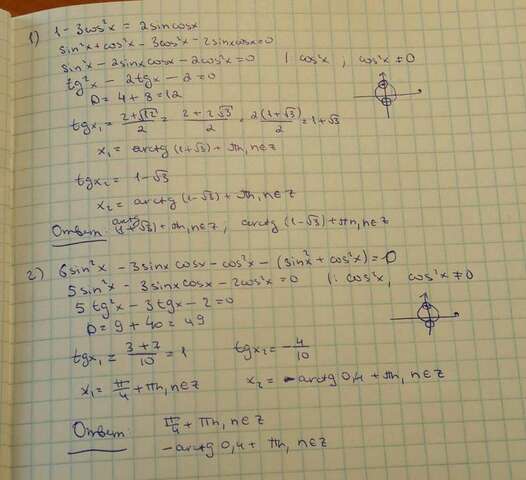 1) 1 - 3cos²x = 2sinxcosx
sin²x + cos²x - 3cos²x - 2sinxcosx = 0
sin²x - 2sinxcosx - 2cos²x = 0 |: cos²x, cos²x ≠ 0
tg²x - 2tgx - 2 = 0
D = 4 + 8 = 12
tgx₁ = (2+√12)/2 = (2+2√3)/2 = 2(1+√3)/2 = 1+√3
x₁ = arctg(1+√3) + πn, n∈z
tgx₂ = 1-√3
x₂ = arctg(1-√3) + πn, n∈z
Ответ: arctg(1+√3) + πn, n∈z, arctg(1-√3) + πn, n∈z
2) 6sin²x - 3sinxcosx - cos²x - (sin²x + cos²x) = 0
5sin²x - 3sinxcosx - 2cos²x = 0 |: cos²x, cos²x ≠ 0
5tg²x - 3tgx - 2 = 0
D = 9 + 40 = 49
tgx₁ = (3+7)/10 = 1 tgx₂ = -4/10
x₁ = π/4 + πn, n∈z x₂ = -arctg 0,4 + πn, n∈z
Ответ: π/4 + πn, n∈z
-arctg 0,4 + πn, n∈z